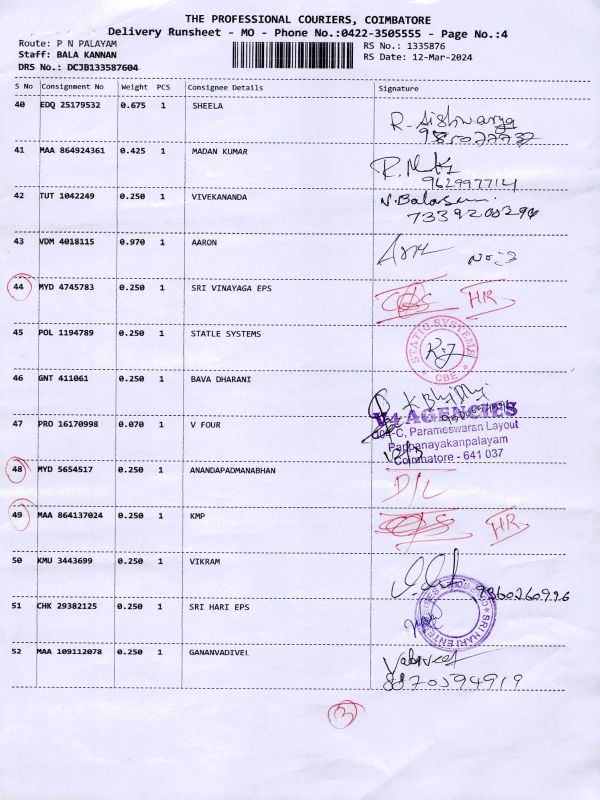 THE PROFESSIONAL COURIERS, COIMBATORE
Delivery Runsheet - MO - Phone No.:0422-3505555 - Page No.:4
Route: P N PALAYAM
Staff: BALA KANNAN
DRS No.: DCJB133587604
RS No.: 1335876
RS Date: 12-Mar-2024
S No Consignment No Weight PCS Consignee Details Signature
40 EDQ 25179532 0.675 1 SHEELA
R. Aishwarya
41 MAA 864924361 0.425 1 MADAN KUMAR
9629977714
42 TUT 1042249 0.250 1 VIVEKANANDA
7339200290
43 VDM 4018115 0.970 1 AARON
44 MYD 4745783 0.250 1 SRI VINAYAGA EPS HR
45 POL 1194789 0.250 1 STATLE SYSTEMS
STATIC SYSTEMS
CBE
46 GNT 411061 0.250 1 BAVA DHARANI
47 PRO 16170998 0.070 1 V FOUR
V4 AGENCIES
Parameswaran Layout
Pappanayakanpalayam
Coimbatore - 641 037
48 MYD 5654517 0.250 1 ANANDAPADMANABHAN D/L
49 MAA 864137024 0.250 1 KMP HR
50 KMU 3443699 0.250 1 VIKRAM
9360260996
51 CHK 29382125 0.250 1 SRI HARI EPS
SRI HARI
52 MAA 109112078 0.250 1 GANANVADIVEL
8870594919
3